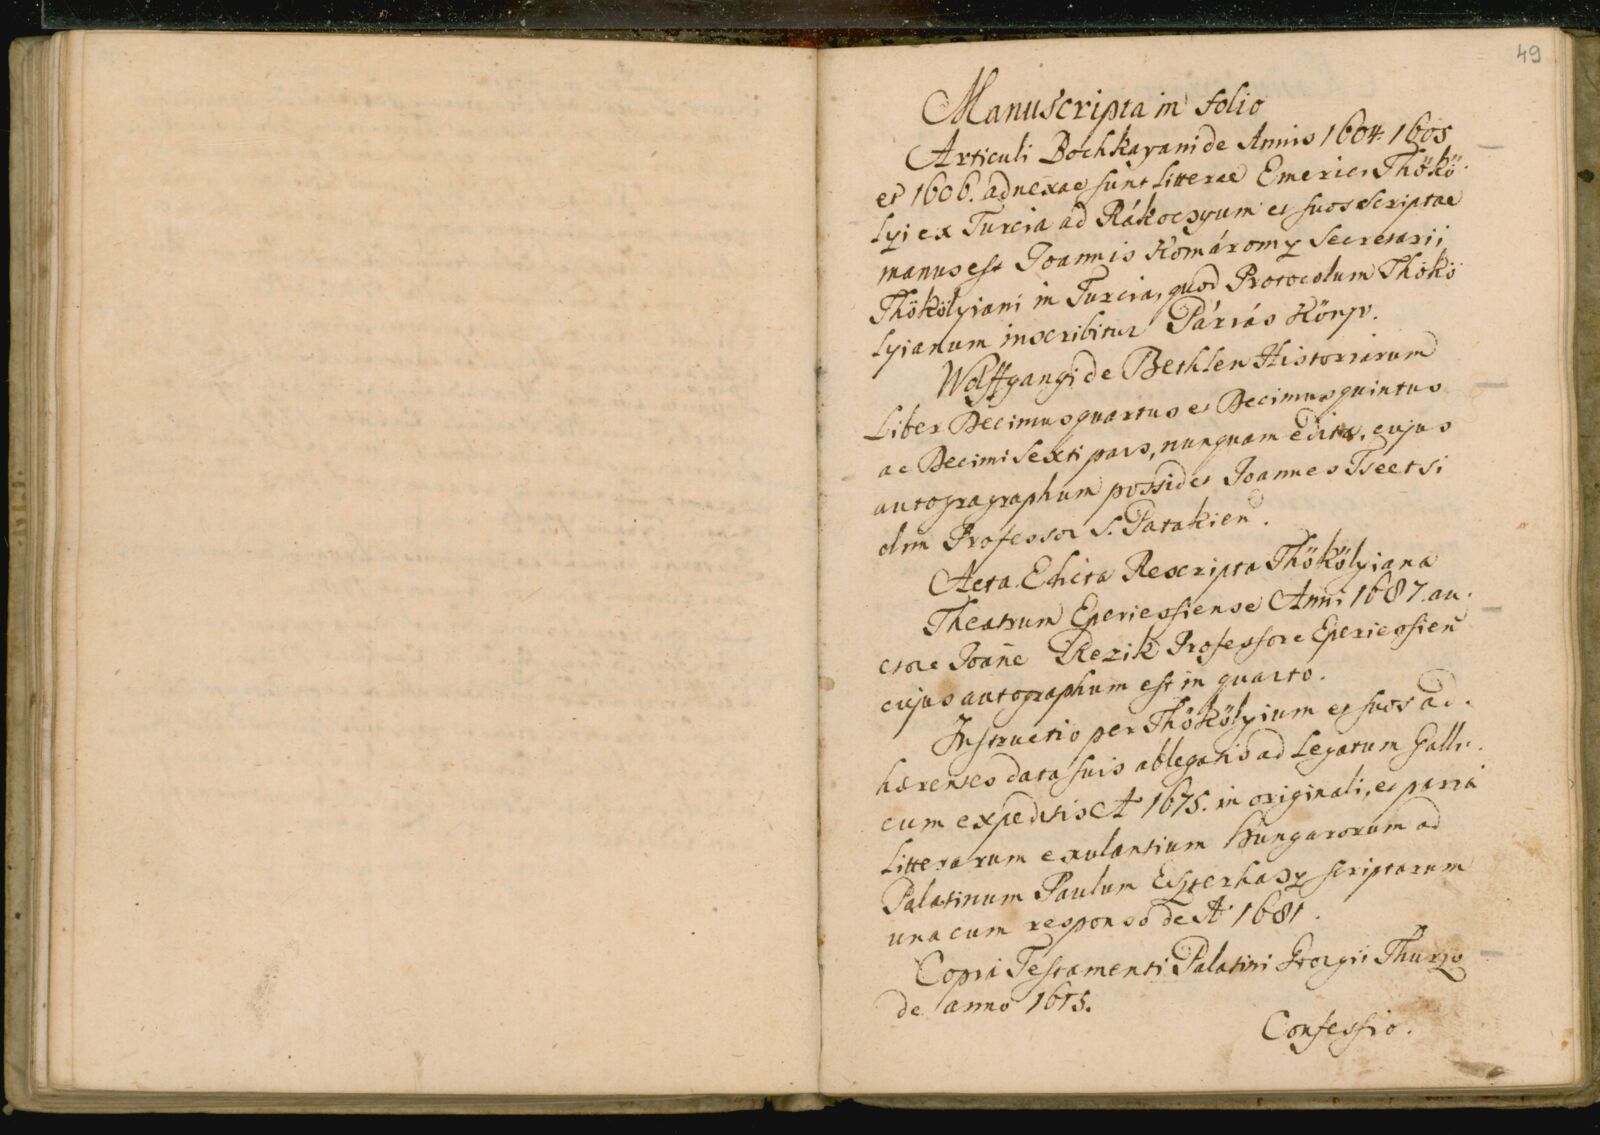 49
Manuscripta in folio
Articuli Bochkayani de Annis 1604 1605
et 1606. adnexae sunt Litterae Emerici Thökö
lyi ex Turcia ad Rákoczyum et suos scriptae
manus est Joannis Komáromy Secretarii
Thökölyiani in Turcia, quod Protocolum Thökö
lyianum inscribitur Páriás Könyv.
Wolffgangi de Bethlen Historiarum
Liber Decimusquartus et Decimusquintus
ac Decimi Sexti pars, nunquam edita, cujus
autogragraphum possidet Joannes Tseetsi
olim Professor S. Patakien.
Acta Edicta Rescripta Thökölyiana
Theatrum Eperiessiense Anni 1687. au
ctore Joañe Rezik Professore Eperiessien
cujus autographum est in quarto.
Instructio per Thökölyium et suos ad
hærentes data suis ablegatis ad Legatum Galli
cum expeditis A 1675. in originali, et paria
Litterarum exulantium Hungarorum ad
Palatinum Paulum Eszterhazy scriptarum
una cum responso de A 1681.
Copia Testamenti Palatini Georgii Thurzo
de anno 1615.
Confessio.